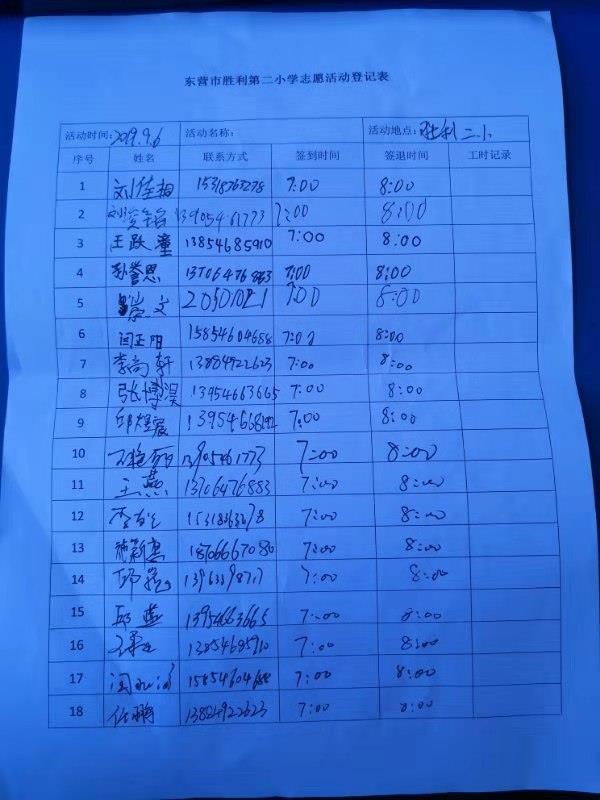 东营市胜利第二小学志愿活动登记表
活动时间: 2019.9.6 活动名称: 活动地点: 胜利二小
序号 姓名 联系方式 签到时间 签退时间 工时记录
1 刘佳相 15318363278 7:00 8:00
2 13905461773 7:00 8:00
3 王跃童 13854685910 7:00 8:00
4 孙誉恩 13706476883 7:00 8:00
5 文 7:00 8:00
6 闫正阳 15854604688 7:00 8:00
7 李尚轩 13884922623 7:00 8:00
8 张博淏 13954663665 7:00 8:00
9 邱煜宸 7:00 8:00
10 13905461773 7:00 8:00
11 王燕 13706476883 7:00 8:00
12 7:00 8:00
13 18706667080 7:00 8:00
14 7:00 8:00
15 邱燕 13954663665 7:00 8:00
16 13854685910 7:00 8:00
17 15854604688 7:00 8:00
18 任鹏 13884922623 7:00 8:00